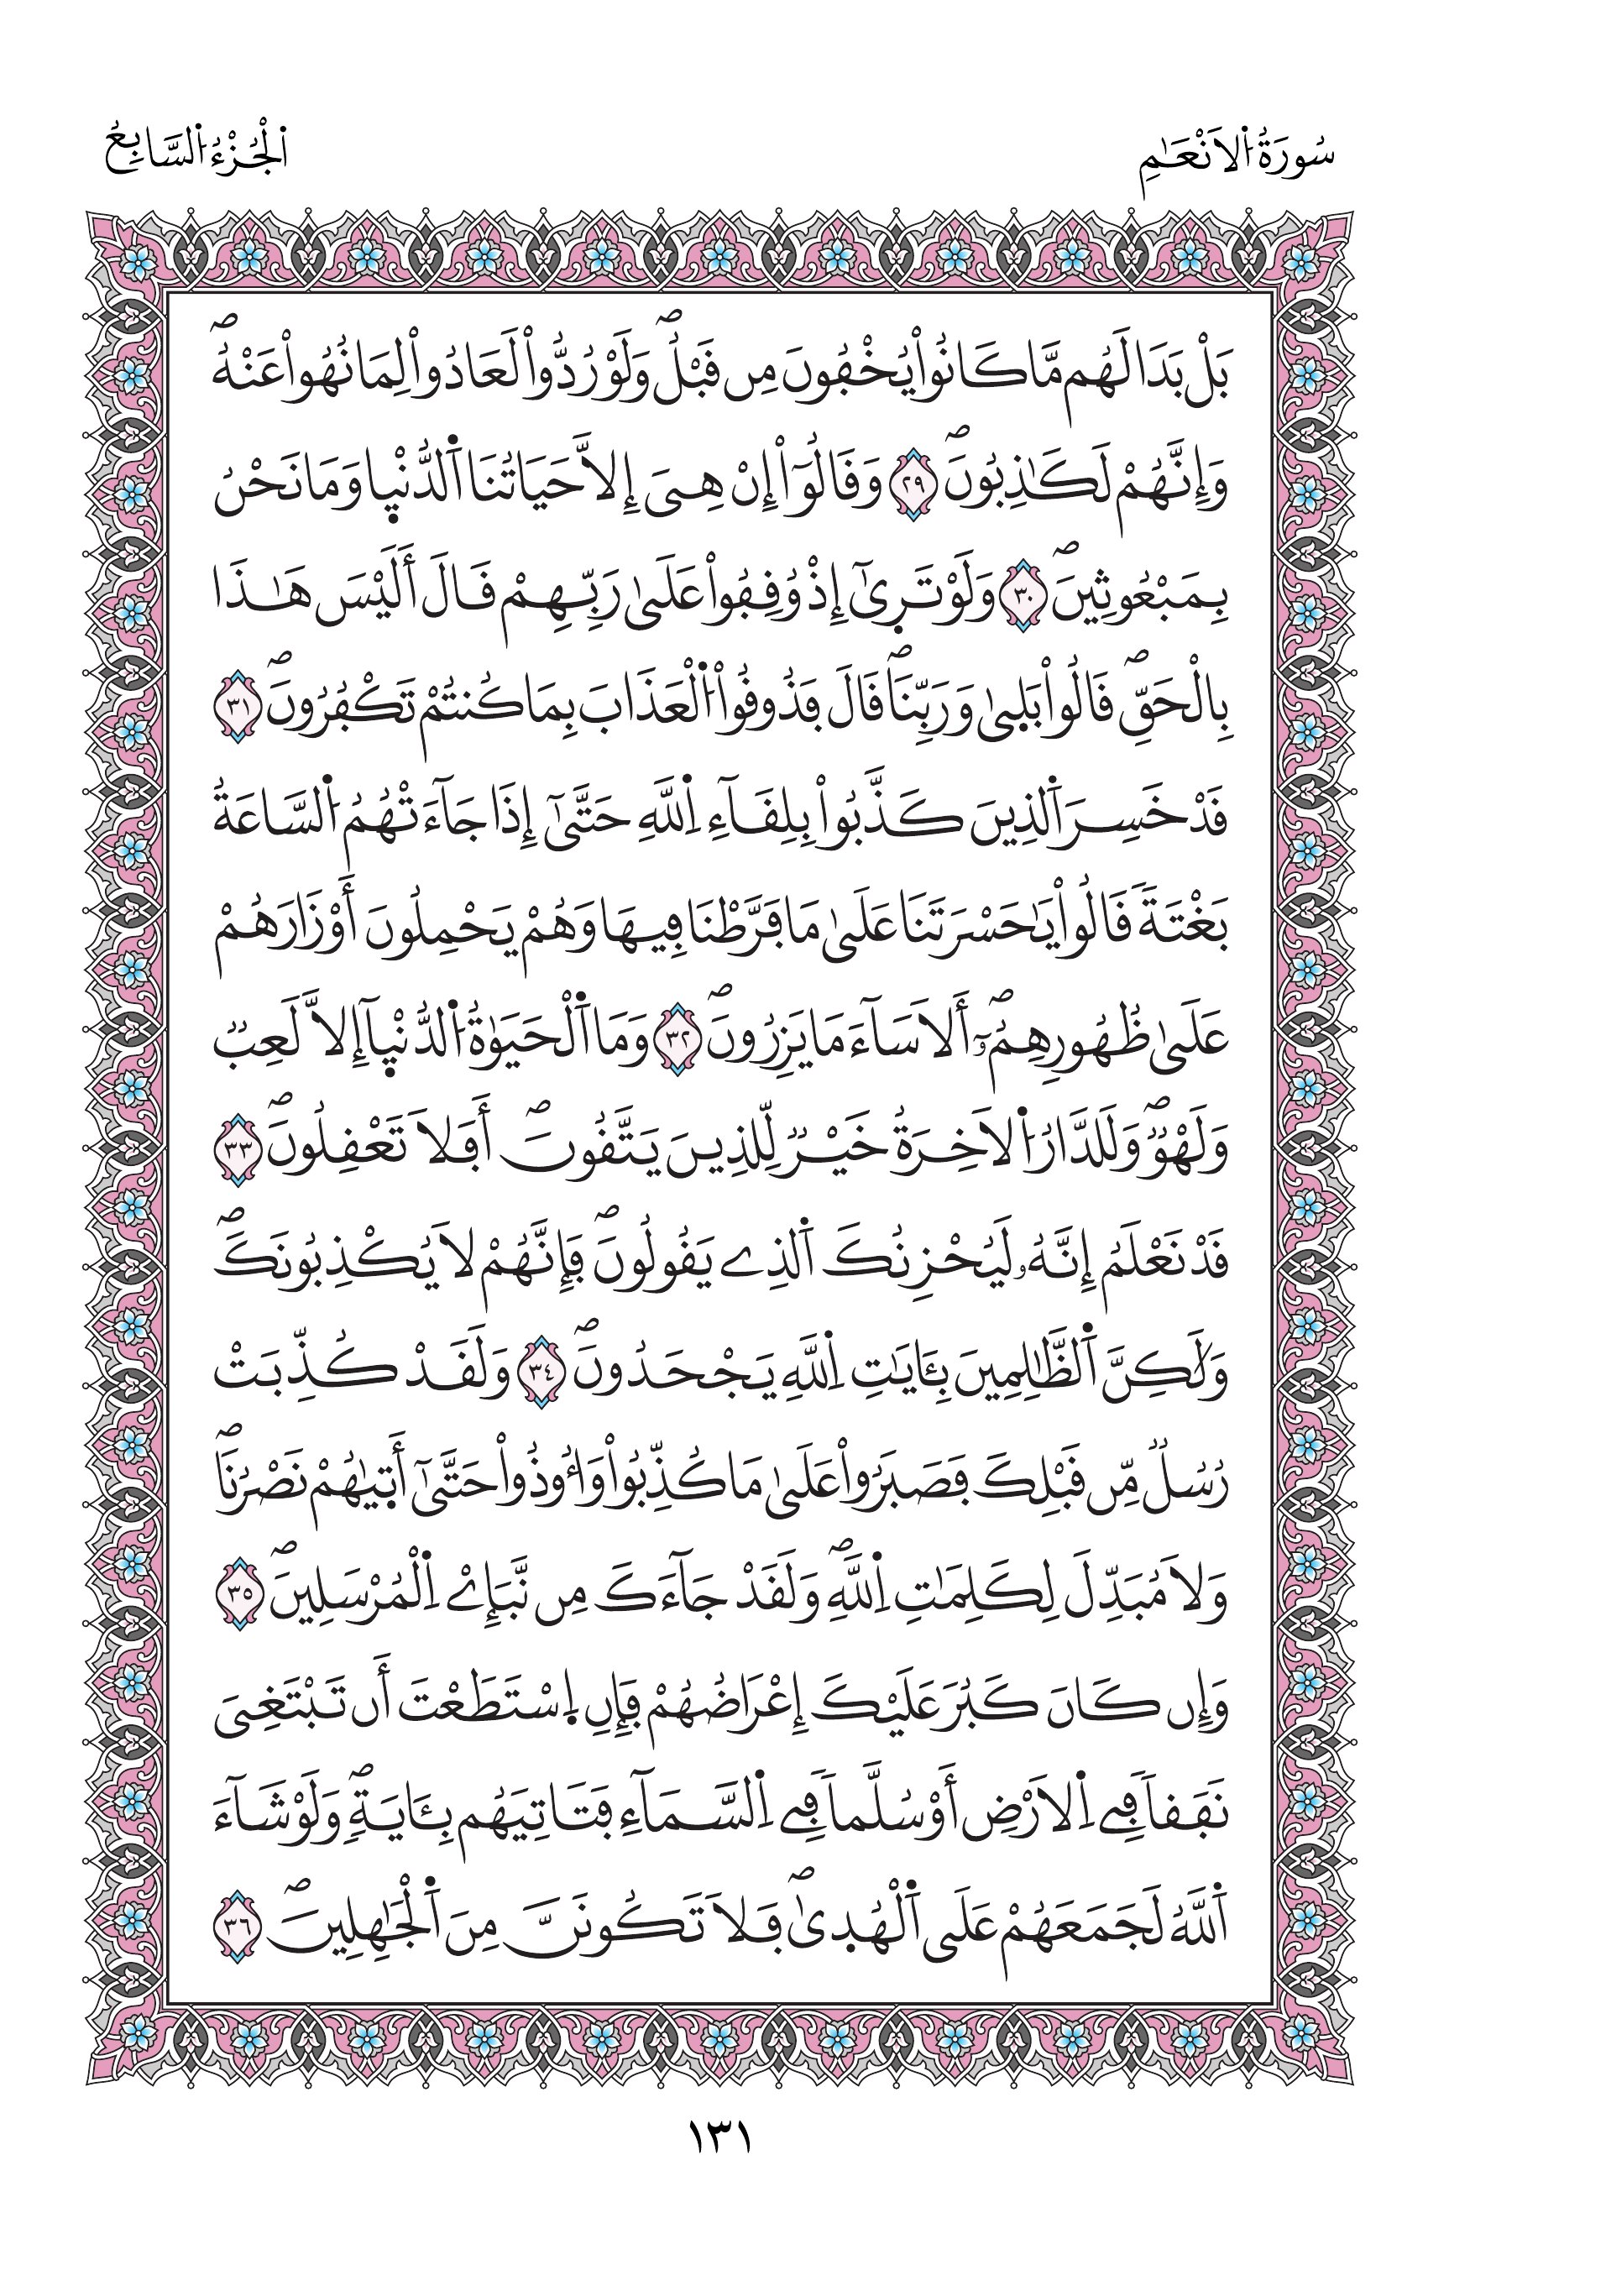 سُورَةُ الَانْعَٰمِ
الْجُزْءُ السَّابِعُ
بَلْ بَدَا لَهُم مَّا كَانُواْ يُخْفُونَ مِن قَبْلُۖ وَلَوْ رُدُّواْ لَعَادُواْ لِمَا نُهُواْ عَنْهُۖ
وَإِنَّهُمْ لَكَٰذِبُونَۖ ٢٩ وَقَالُوٓاْ إِنْ هِيَ إِلَّا حَيَاتُنَا اَ۬لدُّنْي۪ا وَمَا نَحْنُ
بِمَبْعُوثِينَۖ ٣٠ وَلَوْ تَر۪ىٰٓ إِذْ وُقِفُواْ عَلَىٰ رَبِّهِمْ قَالَ أَلَيْسَ هَٰذَا
بِالْحَقِّۖ قَالُواْ بَل۪ىٰ وَرَبِّنَاۖ قَالَ فَذُوقُواْ اُ۬لْعَذَابَ بِمَا كُنتُمْ تَكْفُرُونَۖ ٣١
قَدْ خَسِرَ اَ۬لذِينَ كَذَّبُواْ بِلِقَآءِ اِ۬للَّهِ حَتَّىٰٓ إِذَا جَآءَتْهُمُ اُ۬لسَّاعَةُ
بَغْتَةٗ قَالُواْ يَٰحَسْرَتَنَا عَلَىٰ مَا فَرَّطْنَا فِيهَا وَهُمْ يَحْمِلُونَ أَوْزَارَهُمْ
عَلَىٰ ظُهُورِهِمُۥٓۖ أَلَا سَآءَ مَا يَزِرُونَۖ ٣٢ وَمَا اَ۬لْحَيَوٰةُ اُ۬لدُّنْي۪آ إِلَّا لَعِبٞ
وَلَهْوٞۖ وَلَلدَّارُ اُ۬لَاخِرَةُ خَيْرٞ لِّلذِينَ يَتَّقُونَۖ أَفَلَا تَعْقِلُونَۖ ٣٣
قَدْ نَعْلَمُ إِنَّهُۥ لَيُحْزِنُكَ اَ۬لذِے يَقُولُونَۖ فَإِنَّهُمْ لَا يُكْذِبُونَكَۖ
وَلَٰكِنَّ اَ۬لظَّٰلِمِينَ بِـَٔايَٰتِ اِ۬للَّهِ يَجْحَدُونَۖ ٣٤ وَلَقَدْ كُذِّبَتْ
رُسُلٞ مِّن قَبْلِكَ فَصَبَرُواْ عَلَىٰ مَا كُذِّبُواْ وَأُوذُواْ حَتَّىٰٓ أَت۪يٰهُمْ نَصْرُنَاۖ
وَلَا مُبَدِّلَ لِكَلِمَٰتِ اِ۬للَّهِۖ وَلَقَدْ جَآءَكَ مِن نَّبَإِےْ اِ۬لْمُرْسَلِينَۖ ٣٥
وَإِن كَانَ كَبُرَ عَلَيْكَ إِعْرَاضُهُمْ فَإِنِ اِ۪سْتَطَعْتَ أَن تَبْتَغِيَ
نَفَقاٗ فِے اِ۬لَارْضِ أَوْ سُلَّماٗ فِے اِ۬لسَّمَآءِ فَتَاتِيَهُم بِـَٔايَةٖۖ وَلَوْ شَآءَ
اَ۬للَّهُ لَجَمَعَهُمْ عَلَى اَ۬لْهُد۪ىٰۖ فَلَا تَكُونَنَّ مِنَ اَ۬لْجَٰهِلِينَۖ ٣٦
١٣١